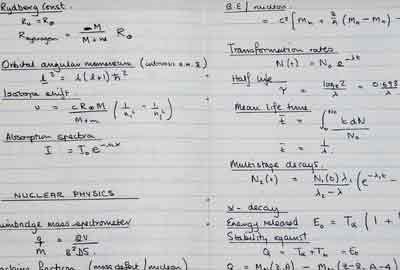 Rydberg Const.
R₀ = R∞
R hydrogen = M / M + m R∞
Orbital angular momentum
l² = l(l+1) ħ²
Isotope shift.
υ = c R∞ M / M + m ( 1/n₁² - 1/n₂² )
Absorption spectra
I = I₀ e^-nαx
NUCLEAR PHYSICS
Bainbridge mass spectrometer
q / m = 2V / B² D S
fraction (mass defect / nucleon)
B.E / nucleon
= c² [ Mₙ + Z/A (M_H - Mₙ) -
Transformation rates
N(t) = N₀ e^-λt
Half life
τ = log_e 2 / λ = 0.693 / λ
Mean life time
t̄ = ∫₀^N₀ t dN / N₀
t̄ = 1 / λ
Multistage decays.
N₂(t) = N₁(0) λ₁ / λ₂ - λ ( e^-λ₁t -
α - decay
Energy released E₀ = Tα ( 1 +
Stability against
Q = Tα + T_b = E₀
Q = M_N (Z, A) - M_N (Z-2, A-4)